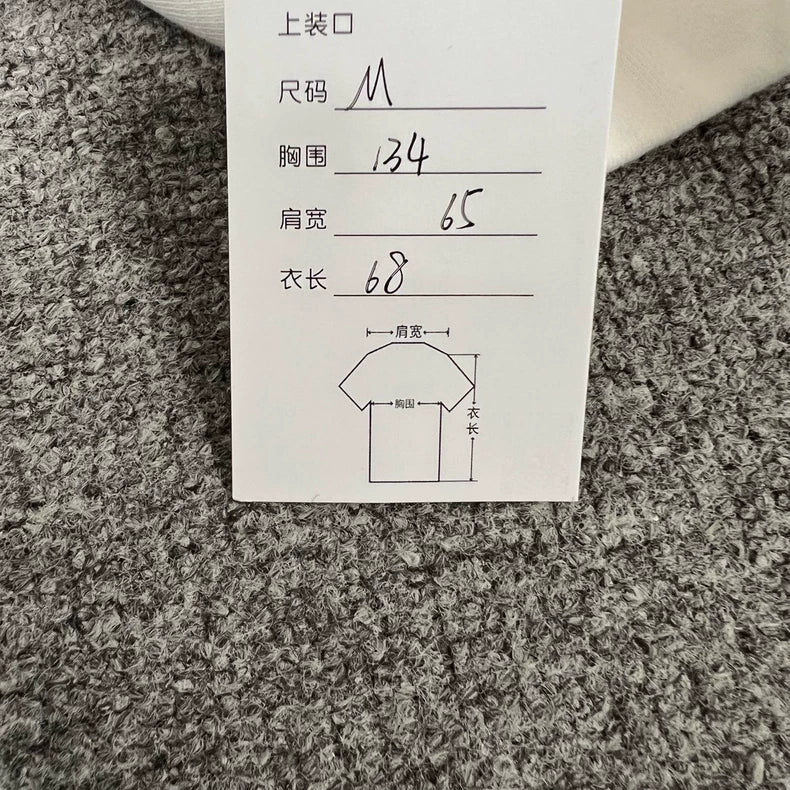 上装口
尺码 M
胸围 134
肩宽 65
衣长 68
肩宽
胸围
衣长